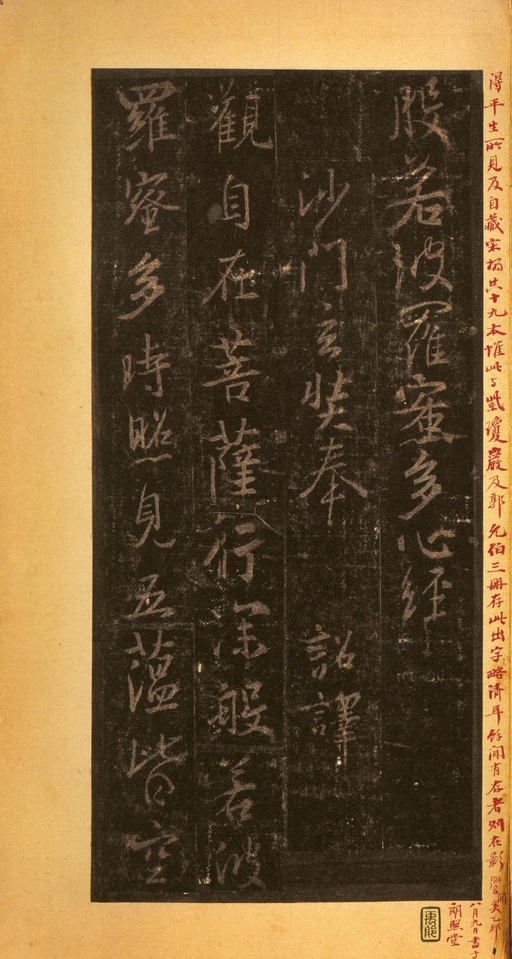 得平生所見及自藏宋搨共十九本惟此与紫瓊巖及郭允伯三冊存此出字略清耳餘聞有存者則在影響間矣乙卯
八月九日書于
朗照堂
般若波羅蜜多心經
沙門玄奘奉 詔譯
觀自在菩薩行深般若波
羅蜜多時照見五蘊皆空